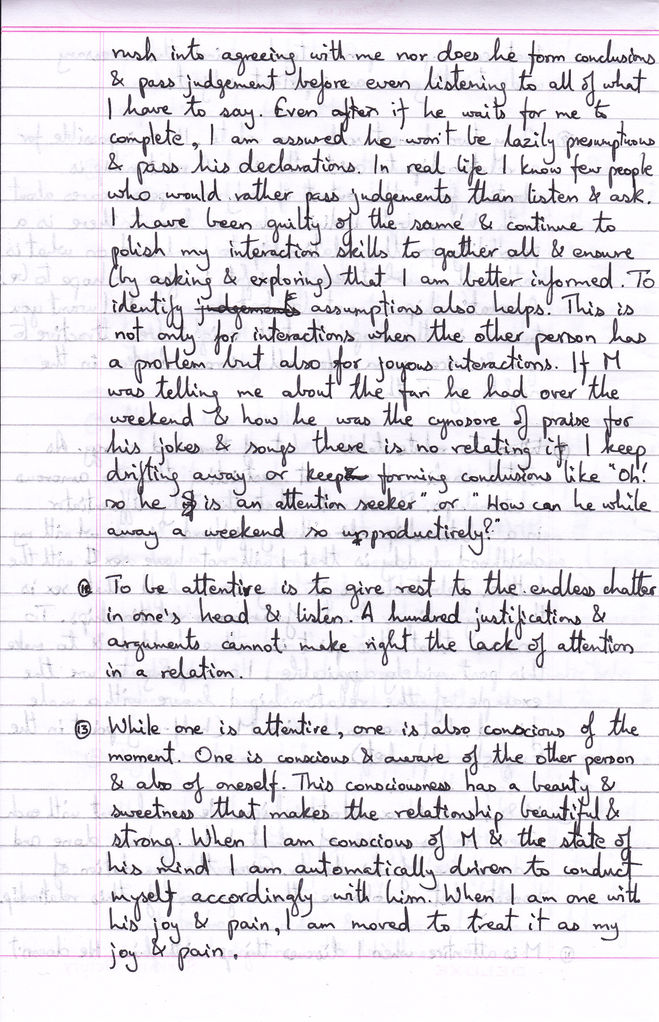 rush into agreeing with me nor does he form conclusions
& pass judgement before even listening to all of what
I have to say. Even after if he waits for me to
complete, I am assured he won't be lazily presumptuous
& pass his declarations. In real life I know few people
who would rather pass judgements than listen & ask.
I have been guilty of the same & continue to
polish my interaction skills to gather all & ensure
(by asking & exploring) that I am better informed. To
identify judgements assumptions also helps. This is
not only for interactions when the other person has
a problem but also for joyous interactions. If M
was telling me about the fun he had over the
weekend & how he was the cynosore of praise for
his jokes & songs there is no relating if I keep
drifting away or keep forming conclusions like "Oh!
so he is an attention seeker" or "How can he while
away a weekend so unproductively?"
⑫ To be attentive is to give rest to the endless chatter
in one's head & listen. A hundred justifications &
arguments cannot make right the lack of attention
in a relation.
⑬ While one is attentive, one is also conscious of the
moment. One is conscious & aware of the other person
& also of oneself. This consciousness has a beauty &
sweetness that makes the relationship beautiful &
strong. When I am conscious of M & the state of
his mind I am automatically driven to conduct
myself accordingly with him. When I am one with
his joy & pain, I am moved to treat it as my
joy & pain.